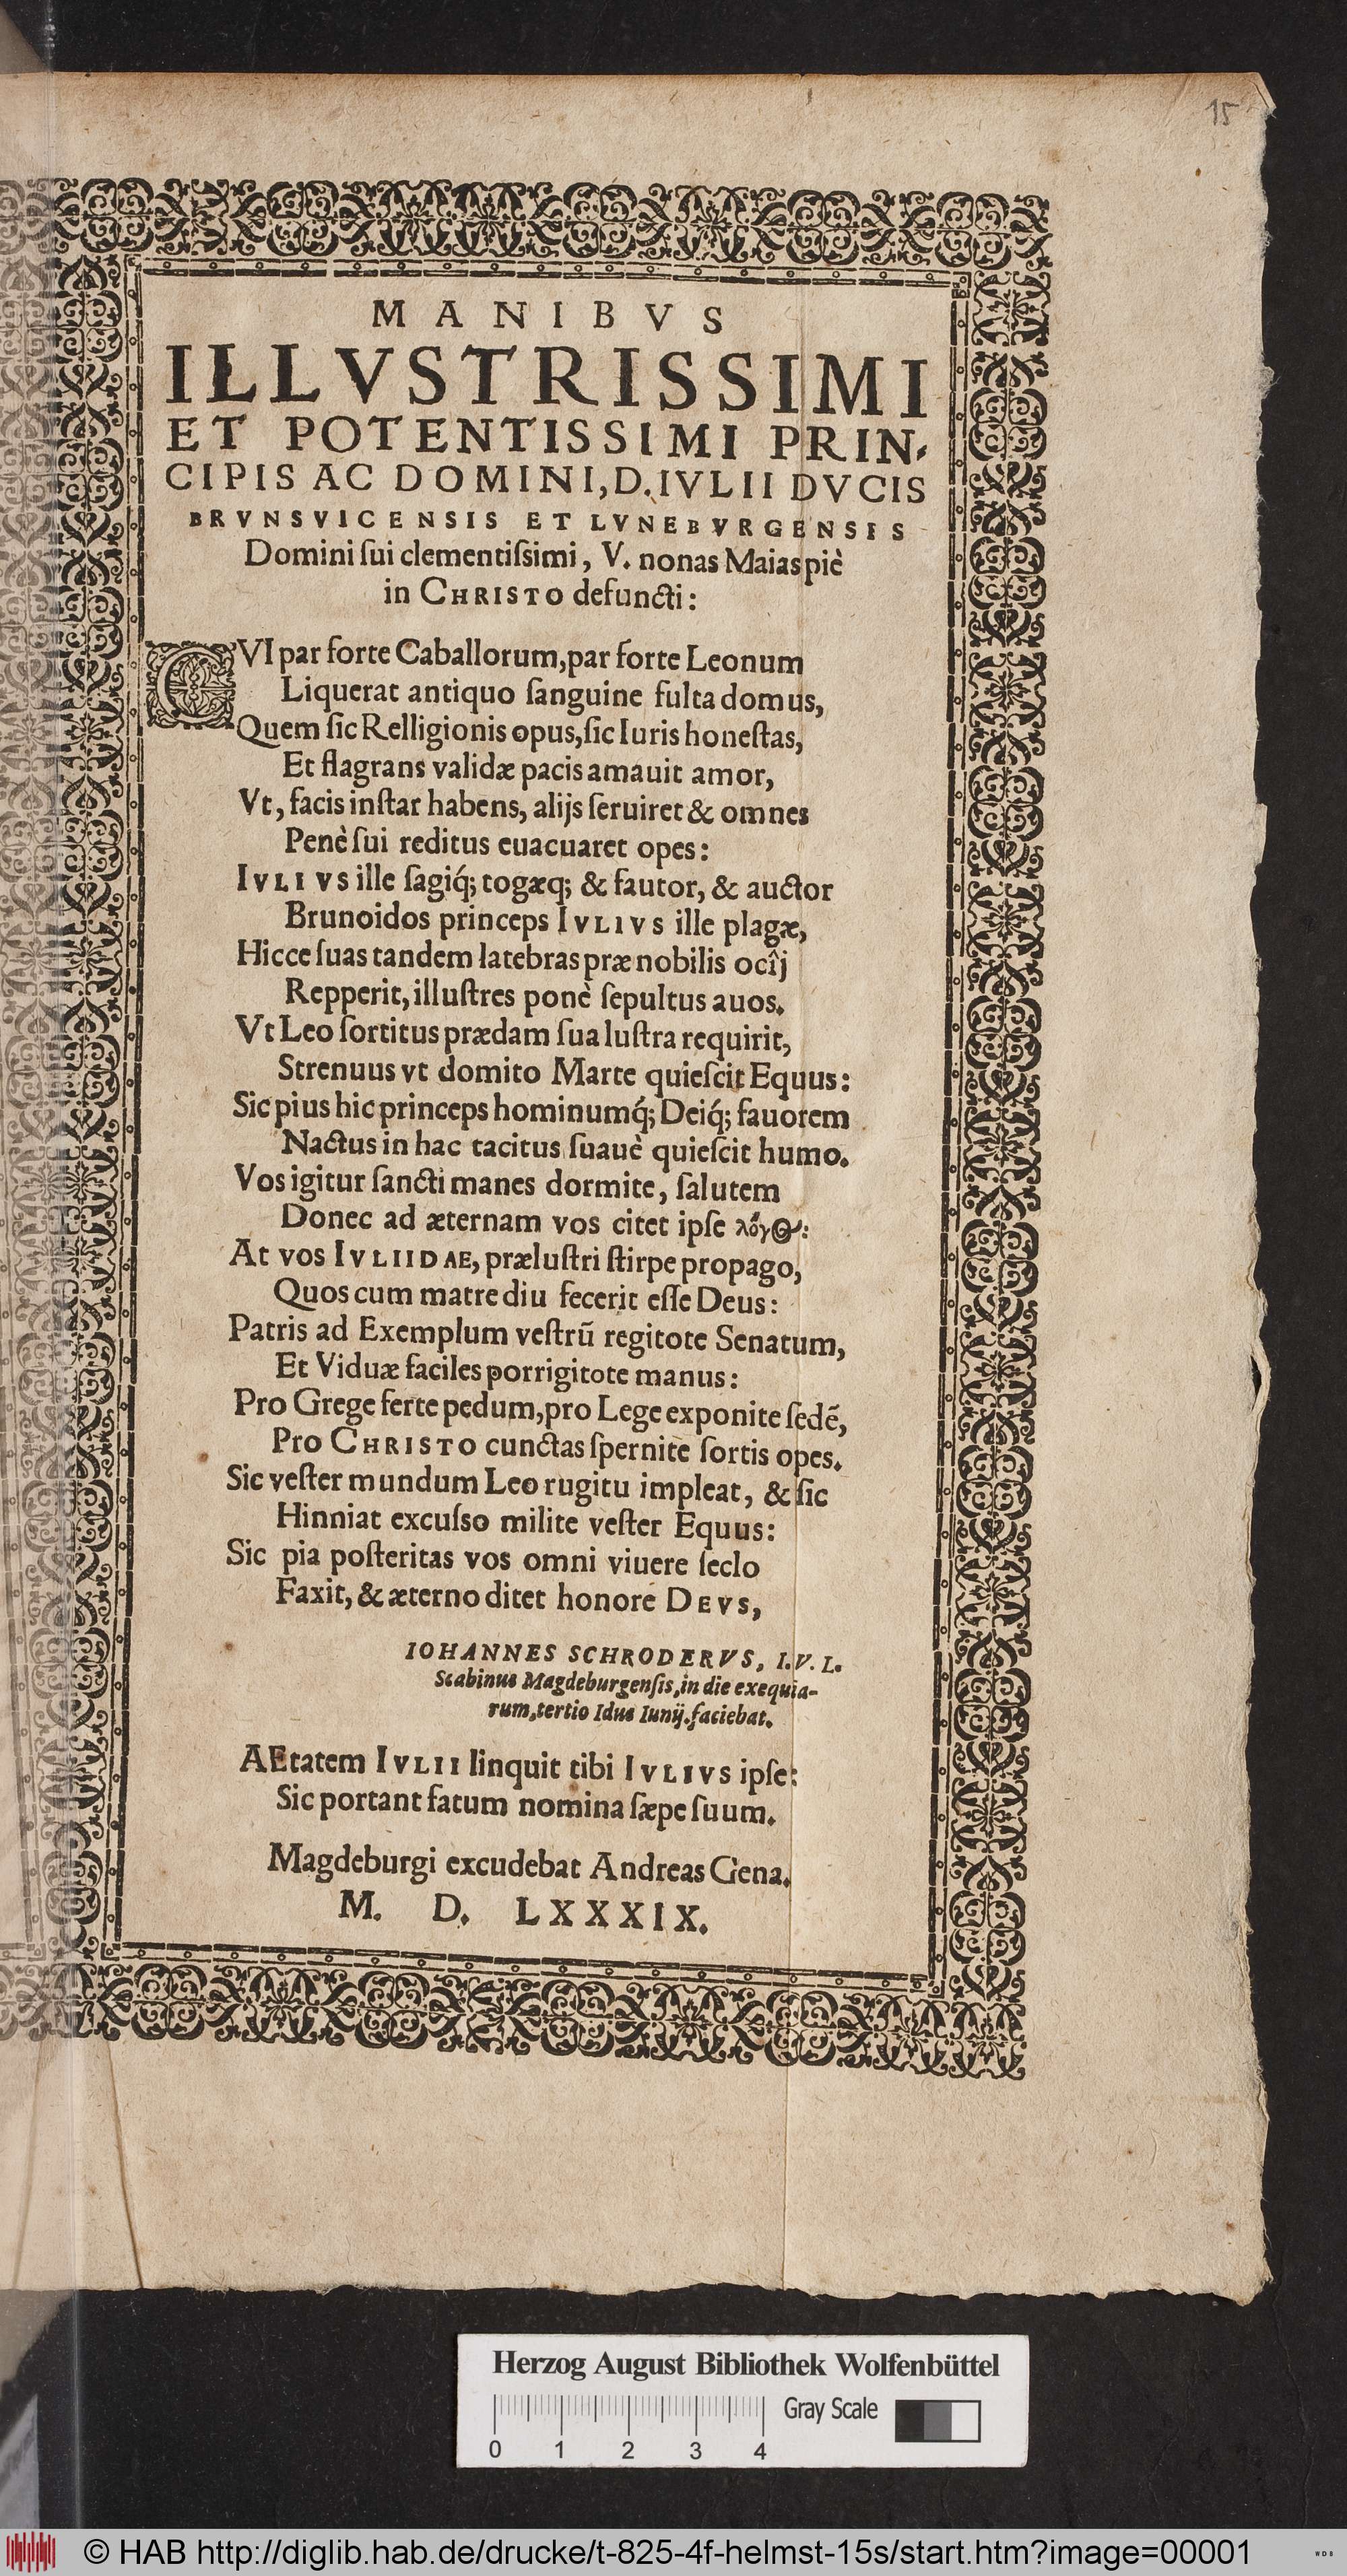 15
MANIBVS
ILLVSTRISSIMI
ET POTENTISSIMI PRIN-
CIPIS AC DOMINI, D. IVLII DVCIS
BRVNSVICENSIS ET LVNEBVRGENSIS
Domini ſui clementiſsimi, V. nonas Maias piè
in CHRISTO defuncti:
CVI par forte Caballorum, par forte Leonum
Liquerat antiquo ſanguine fulta domus,
Quem ſic Relligionis opus, ſic Iuris honeſtas,
Et flagrans validæ pacis amauit amor,
Vt, facis inſtar habens, alijs ſeruiret & omnes
Penè ſui reditus euacuaret opes:
IVLIVS ille ſagiq́; togæq; & fautor, & auctor
Brunoidos princeps IVLIVS ille plagæ,
Hicce ſuas tandem latebras præ nobilis ocîj
Repperit, illuſtres ponè ſepultus auos.
Vt Leo ſortitus prædam ſua luſtra requirit,
Strenuus vt domito Marte quieſcit Equus:
Sic pius hic princeps hominumq́; Deiq́; fauorem
Nactus in hac tacitus ſuauè quieſcit humo.
Vos igitur ſancti manes dormite, ſalutem
Donec ad æternam vos citet ipſe λόγος:
At vos IVLIIDAE, præluſtri ſtirpe propago,
Quos cum matre diu fecerit eſſe Deus:
Patris ad Exemplum veſtrũ regitote Senatum,
Et Viduæ faciles porrigitote manus:
Pro Grege ferte pedum, pro Lege exponite ſedẽ,
Pro CHRISTO cunctas ſpernite ſortis opes.
Sic veſter mundum Leo rugitu impleat, & ſic
Hinniat excuſso milite veſter Equus:
Sic pia poſteritas vos omni viuere ſeclo
Faxit, & æterno ditet honore DEVS,
IOHANNES SCHRODERVS, I.V.L.
Scabinus Magdeburgenſis, in die exequia-
rum, tertio Idus Iunij. faciebat.
AEtatem IVLII linquit tibi IVLIVS ipſe:
Sic portant fatum nomina ſæpe ſuum.
Magdeburgi excudebat Andreas Gena.
M. D. LXXXIX.
Herzog August Bibliothek Wolfenbüttel
Gray Scale
0 1 2 3 4
© HAB http://diglib.hab.de/drucke/t-825-4f-helmst-15s/start.htm?image=00001
WDB